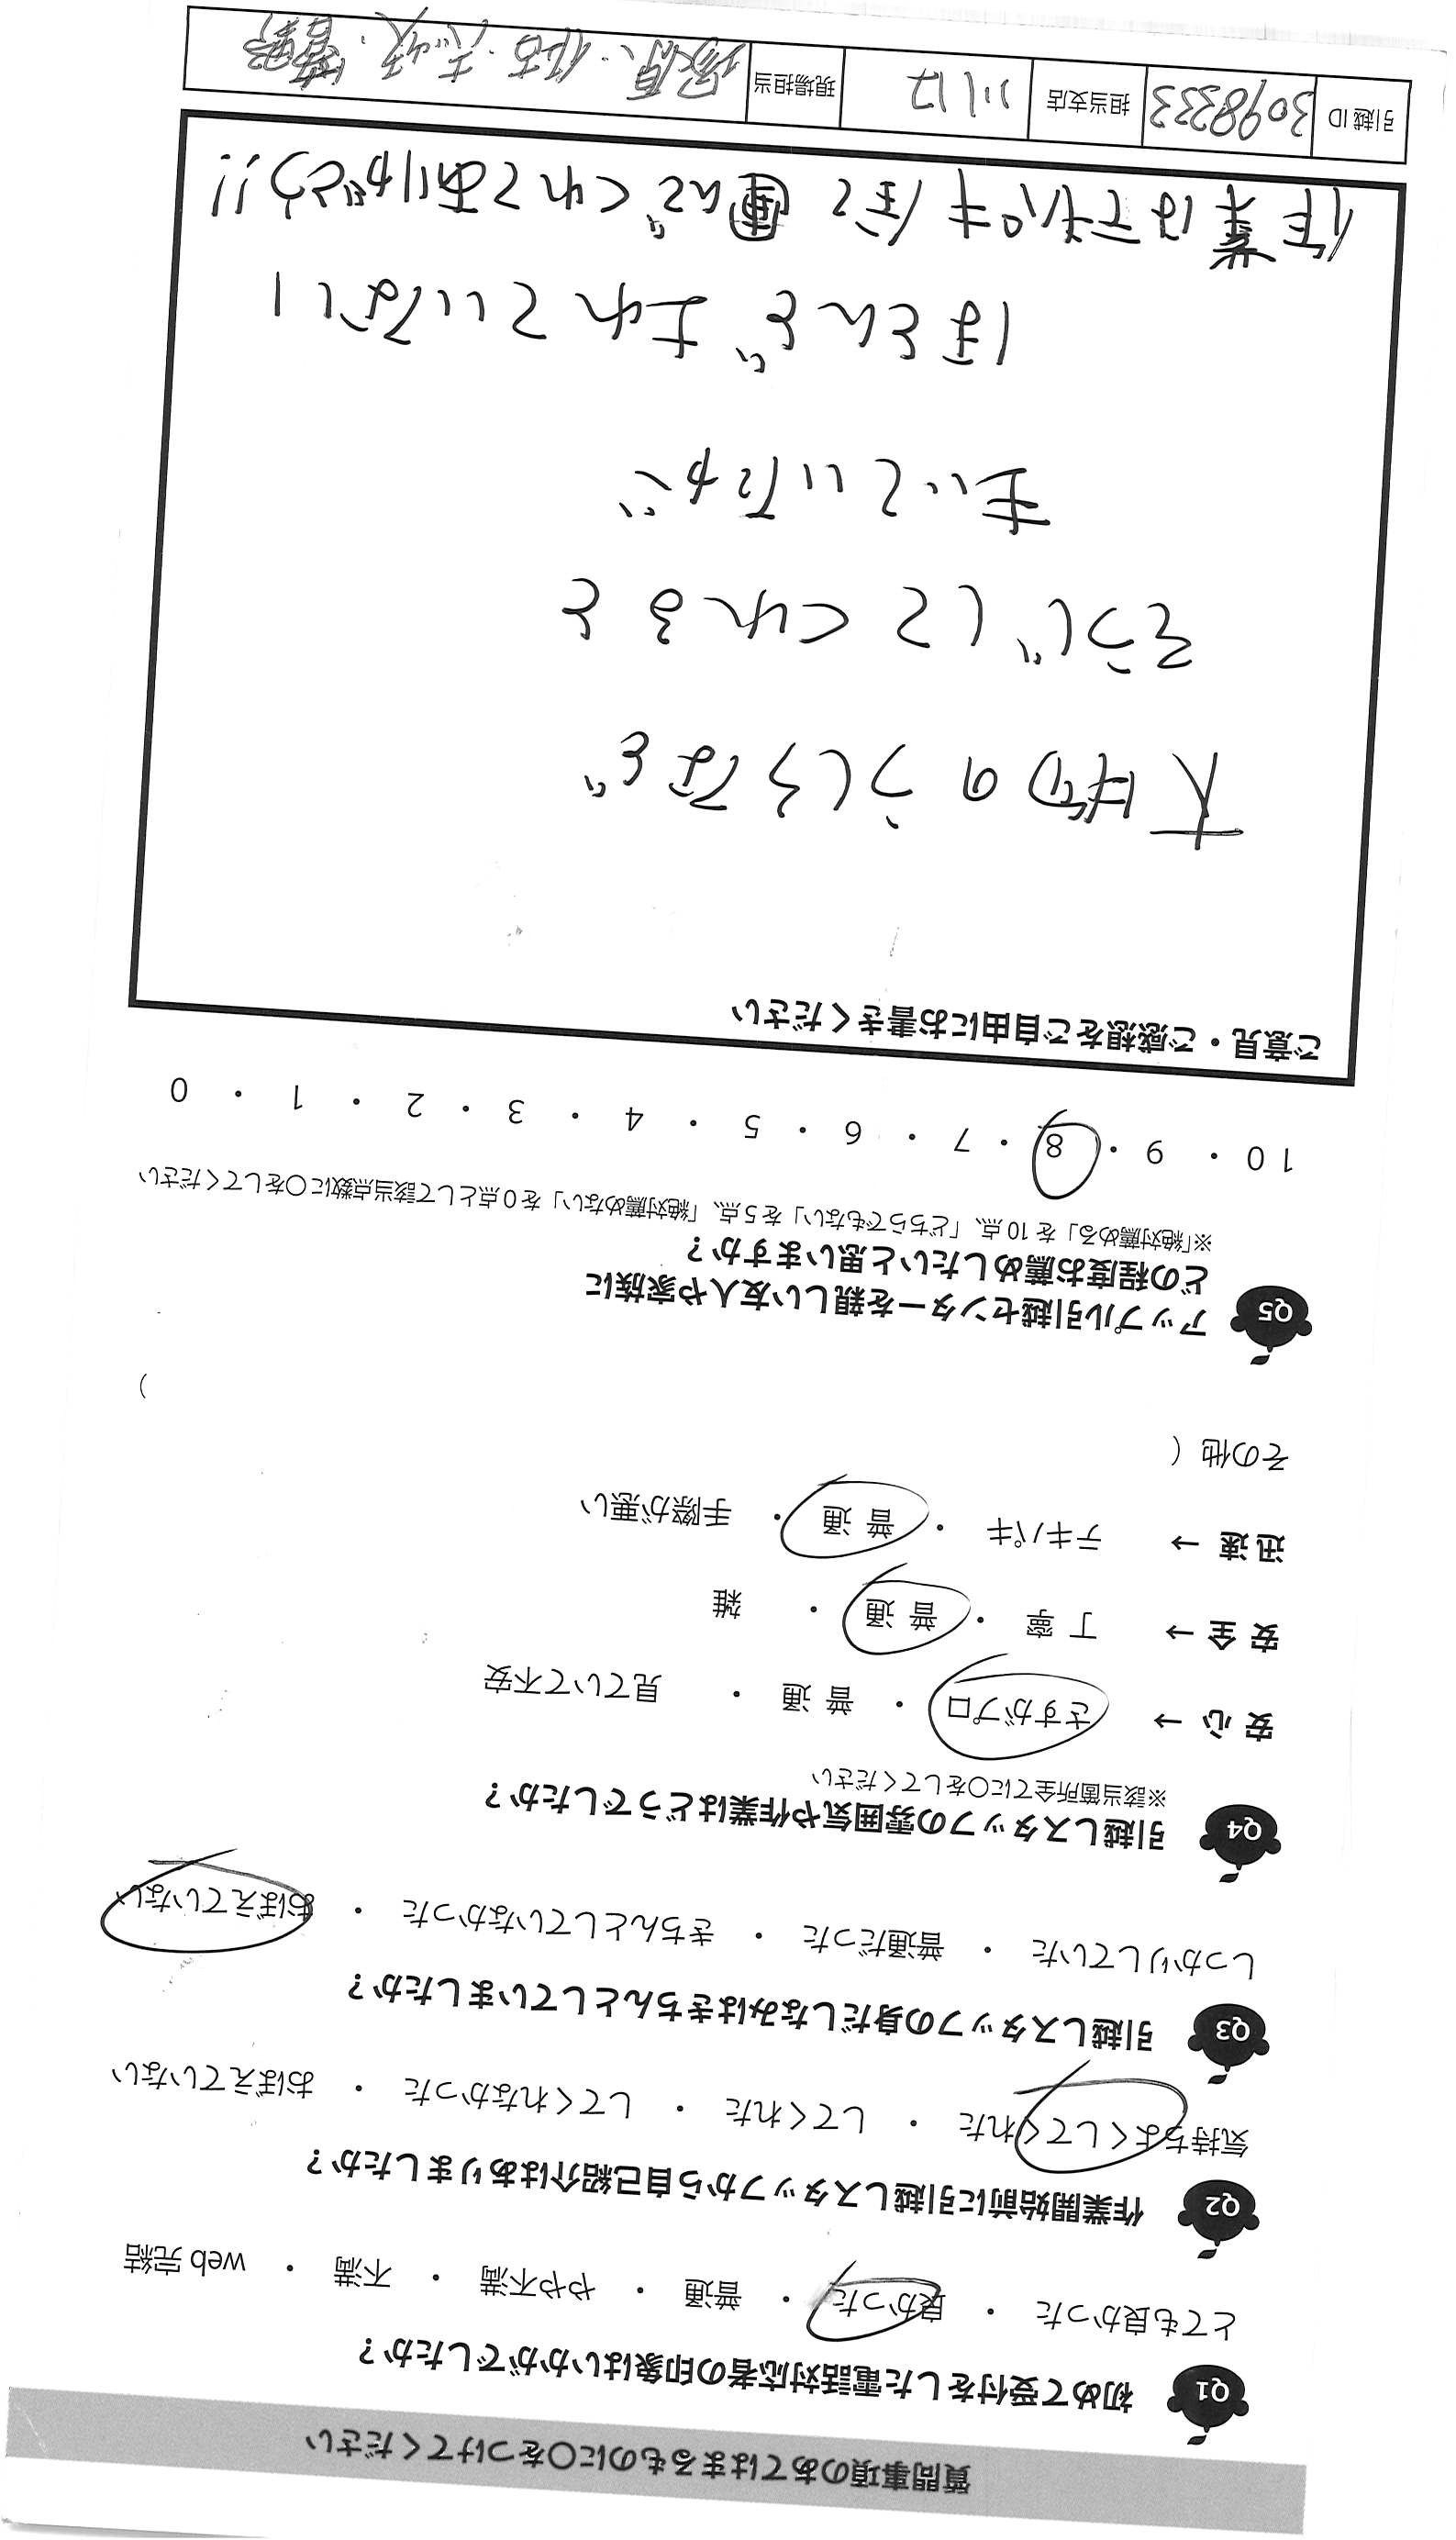 質問事項のあてはまるものに○をつけてください
Q1 初めて受付をした電話対応者の印象はいかがでしたか？
とても良かった ・ 良かった ・ 普通 ・ やや不満 ・ 不満 ・ web 完結
Q2 作業開始前に引越しスタッフから自己紹介はありましたか？
気持ちよくしてくれた ・ してくれた ・ してくれなかった ・ おぼえていない
Q3 引越しスタッフの身だしなみはきちんとしていましたか？
しっかりしていた ・ 普通だった ・ きちんとしていなかった ・ おぼえていない
Q4 引越しスタッフの雰囲気や作業はどうでしたか？
※該当箇所全てに○をしてください
安 心 → さすがプロ ・ 普 通 ・ 見ていて不安
安 全 → 丁 寧 ・ 普 通 ・ 雑
迅 速 → テキパキ ・ 普 通 ・ 手際が悪い
その他（ ）
Q5 アップル引越センターを親しい友人や家族に
どの程度お薦めしたいと思いますか？
※「絶対薦める」を 10 点、「どちらでもない」を 5 点、「絶対薦めない」を 0 点として該当点数に○をしてください
10 ・ 9 ・ 8 ・ 7 ・ 6 ・ 5 ・ 4 ・ 3 ・ 2 ・ 1 ・ 0
ご意見・ご感想をご自由にお書きください
大物のうしろなど
そうじしてくれると
きいていたが
ほとんどされていない
作業はてきパキ 全て 運んでくれてありがとう!!
引越 ID 3098333 担当支店 川口 現場担当